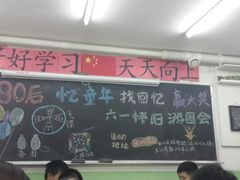 好好学习 天天向上
80后 忆童年 找回忆 赢大奖
六一怀旧游园会
活动
地址